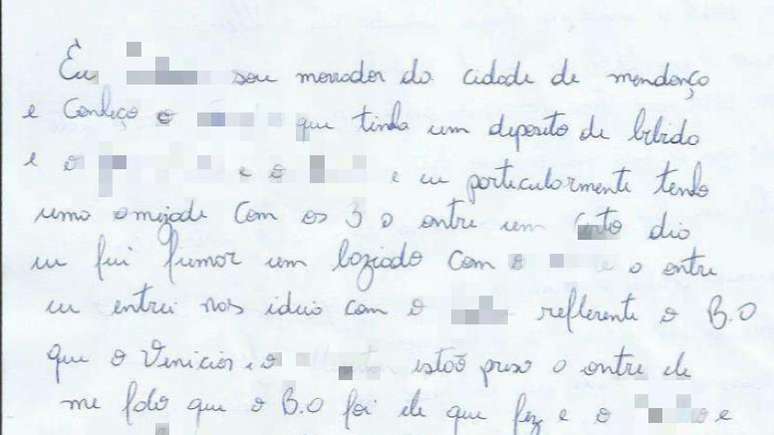 Eu sou morrador da cidade de mendonço
e Conheço o que tinha um deposito de bibida
e o e o e eu particularmente tenho
uma amizade Com os 3 o ontre um certo dia
eu fui fumar um baziado com o e o ontre
eu entrei nas ideia com o refferente o B.O
que o Venicios e o estão preso o ontre ele
me falo que o B.O foi ele que fez e o e